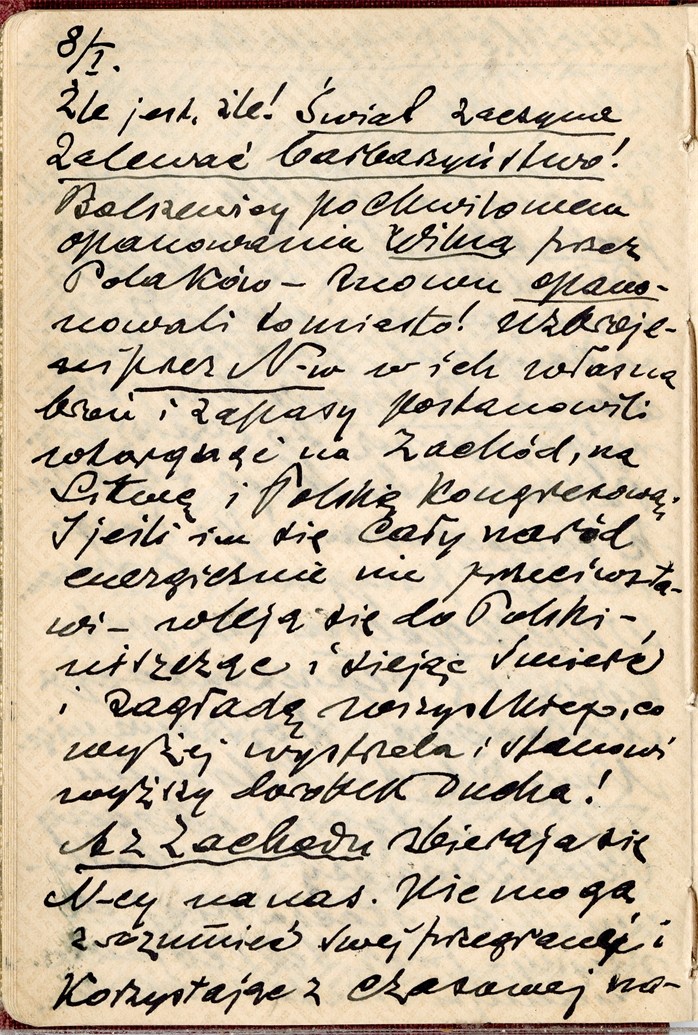 8/I.
Źle jest, źle! Świat zaczyna
zalewać barbarzyństwo!
Bolszewicy po chwilowem
opanowaniu Wilna przez
Polaków – znowu opano-
nowali to miasto! Uzbroje-
ni przez N-w w ich własną
broń i zapasy postanowili
wtargnąć na Zachód, na
Litwę i Polskę Kongresową.
I jeśli im się cały naród
energicznie nie przeciwsta-
wi – wleją się do Polski –,
niszcząc i siejąc śmierć
i zagładę wszystkiego, co
wyżej wystrzela i stanowi
wyższy dorobek Ducha!
A z Zachodu zbierają się
N-cy na nas. Nie mogą
zrozumieć swej przegranej i
Korzystając z czasowej na-